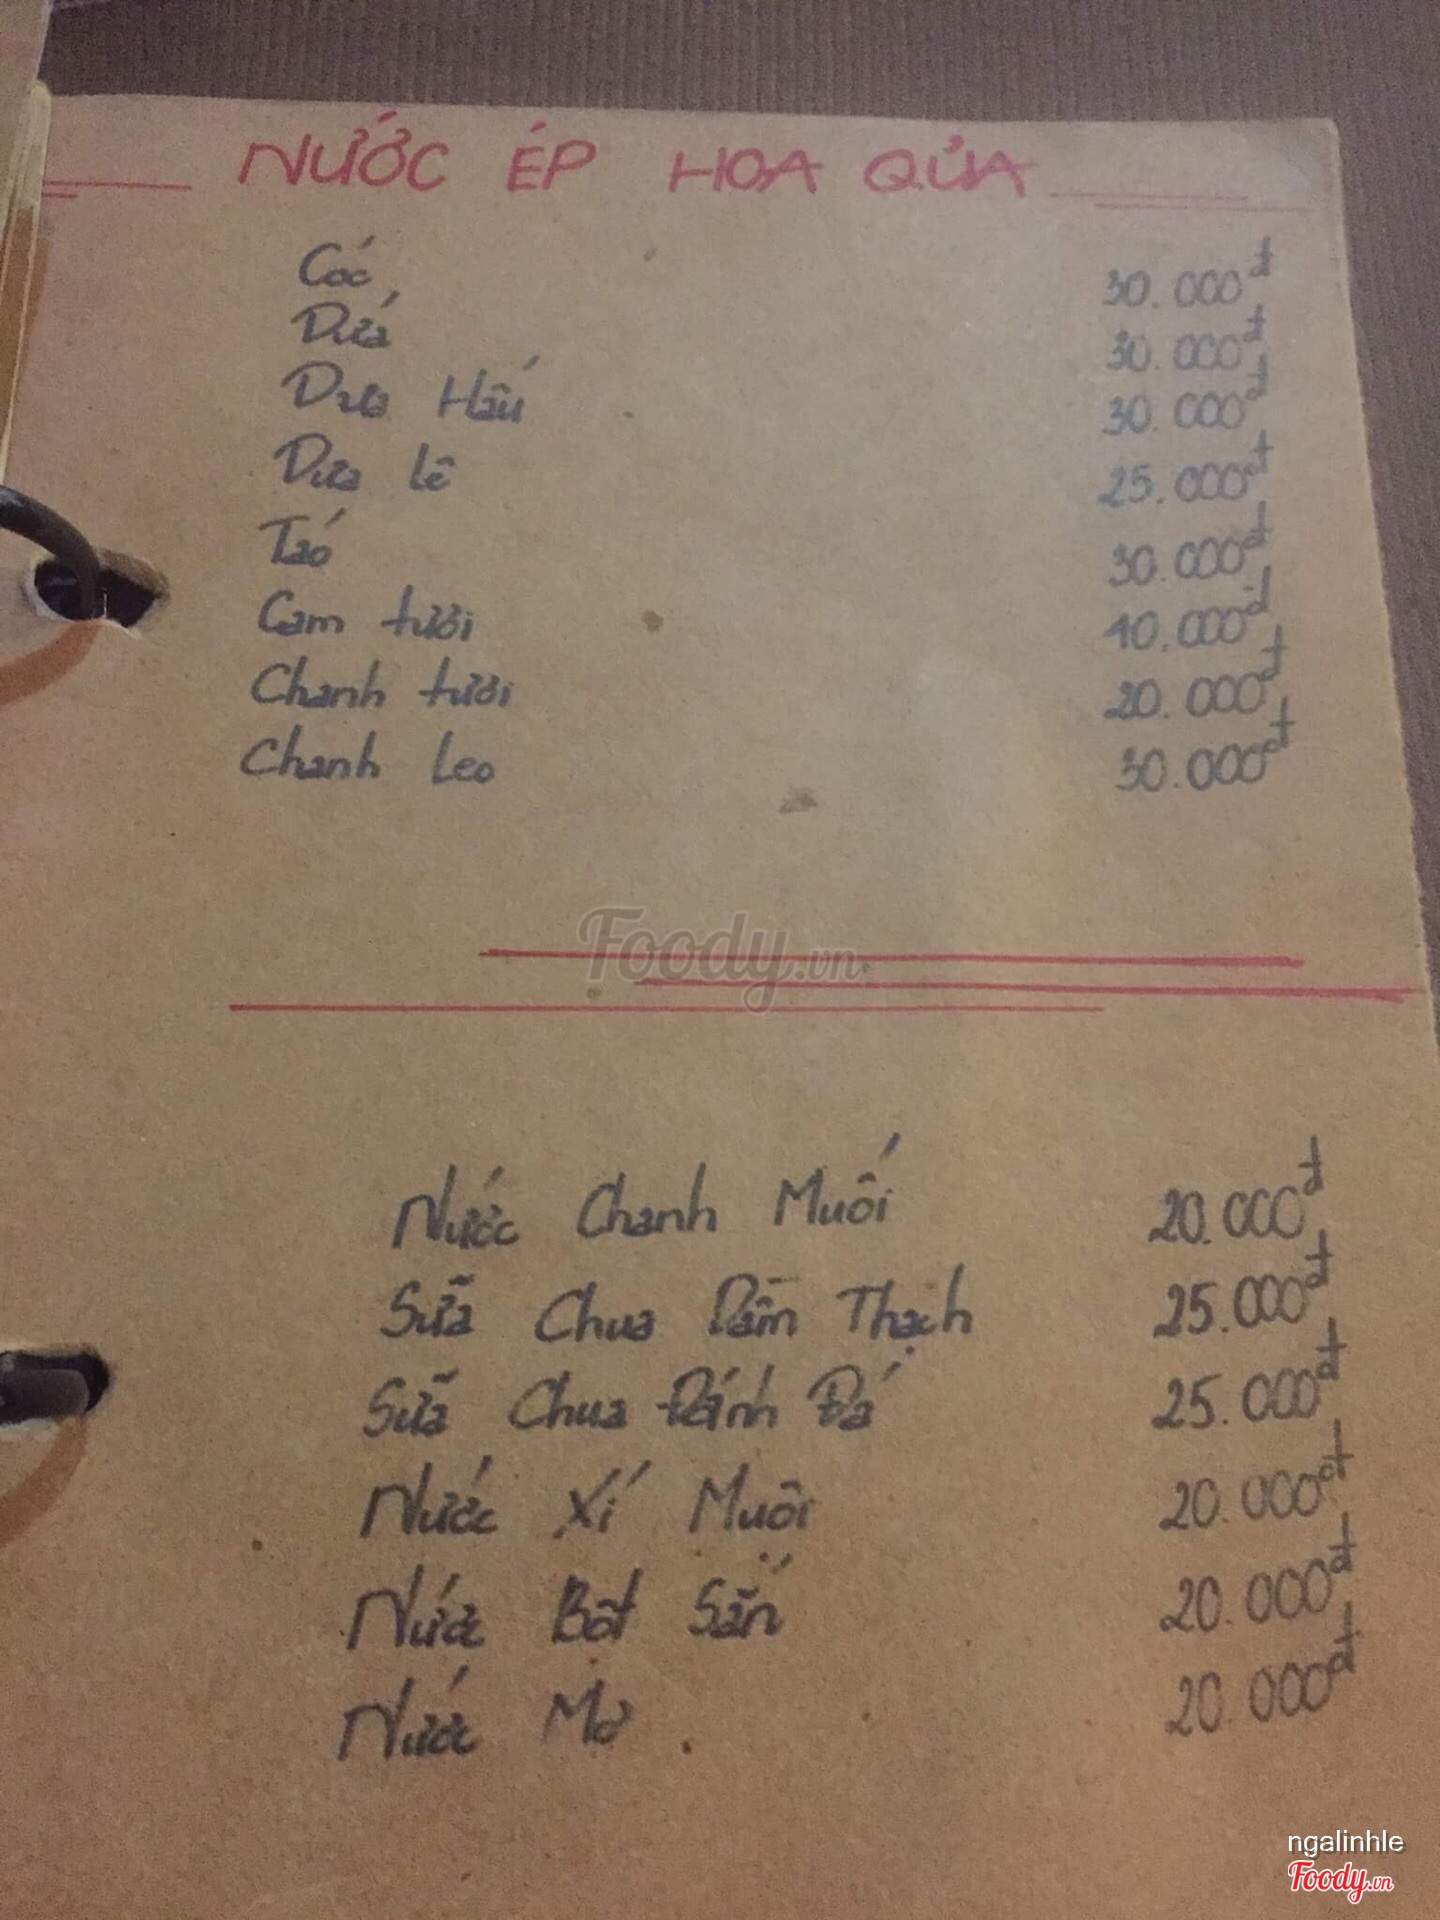 NƯỚC ÉP HOA QỦA
Cóc 30.000đ
Dứa 30.000đ
Dưa Hấu 30.000đ
Dưa Lê 25.000đ
Táo 30.000đ
Cam tươi 40.000đ
Chanh tươi 20.000đ
Chanh Leo 30.000đ
Foody.vn
Nước Chanh Muối 20.000đ
Sữa Chua Dầm Thạch 25.000đ
Sữa Chua Đánh Đá 25.000đ
Nước Xí Muội 20.000đ
Nước Bột Sắn 20.000đ
Nước Mơ 20.000đ
ngalinhle
Foody.vn